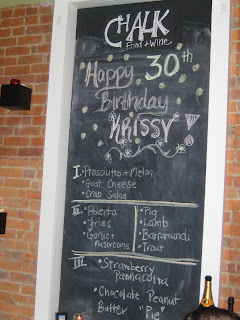 CHALK
Food + Wine
Happy 30th
Birthday
KRISSY
I. • Prosciutto + Melon
• Goat Cheese
• Crab Salad
II. • Polenta
• Fries
• Garlic +
Mushrooms
• Pig
• Lamb
• Barramundi
• Trout
III. • Strawberry
Pannacotta
• Chocolate Peanut
Butter "Pie"